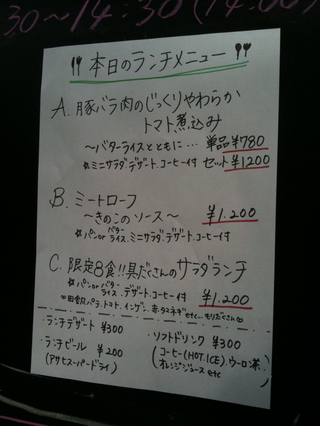 30〜14:30(14:00)
本日のランチメニュー
A. 豚バラ肉のじっくりやわらか
トマト煮込み
〜バターライスとともに… 単品 ¥780
☆ミニサラダ.デザート.コーヒー付 セット ¥1.200
B. ミートローフ
〜きのこのソース〜 ¥1.200
☆パンor バターライス.ミニサラダ.デザート.コーヒー付
C. 限定8食!!具だくさんのサラダランチ
☆パンor バターライス.デザート.コーヒー付 ¥1.200
田舎風パテ.トマト.インゲン.赤タマネギetc…もりだくさん
・ランチデザート ¥300
・ソフトドリンク ¥300
・ランチビール ¥200
(コーヒー(HOT.ICE).ウーロン茶.
(アサヒスーパードライ)
オレンジジュース etc